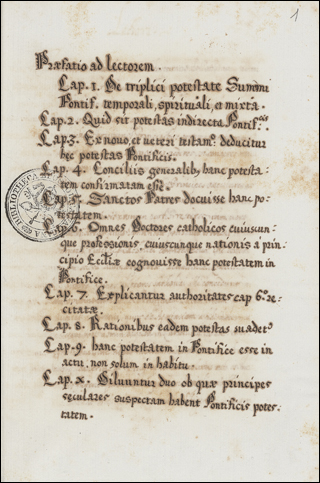 1
Præfatio ad lectorem.
Cap. 1. De triplici potestate Summi
Pontif. temporali, spirituali, et mixta.
Cap. 2. Quid sit potestas indirecta Pontif.cis
Cap. 3. Ex novo, et veteri testam.o deducitur
hec potestas Pontificis.
Cap. 4. Conciliis generalib, hanc potesta-
tem confirmatam esse.
Cap. 5. Sanctos Patres docuisse hanc po-
testatem.
Cap. 6. Omnes Doctores catholicos cuiuscun-
que professionis, cuiuscunque nationis a prin-
cipio Eccliæ cognouisse hanc potestatem in
Pontifice.
Cap. 7. Explicantur authoritates cap 6.o re-
citatæ.
Cap. 8. Rationibus eadem potestas suadet.
Cap. 9. hanc potestatem in Pontifice esse in
actu, non solum in habitu.
Cap. x. Diluuntur duo ob quæ principes
seculares suspectam habent Pontificis potes-
tatem.
BIBLIOTECA